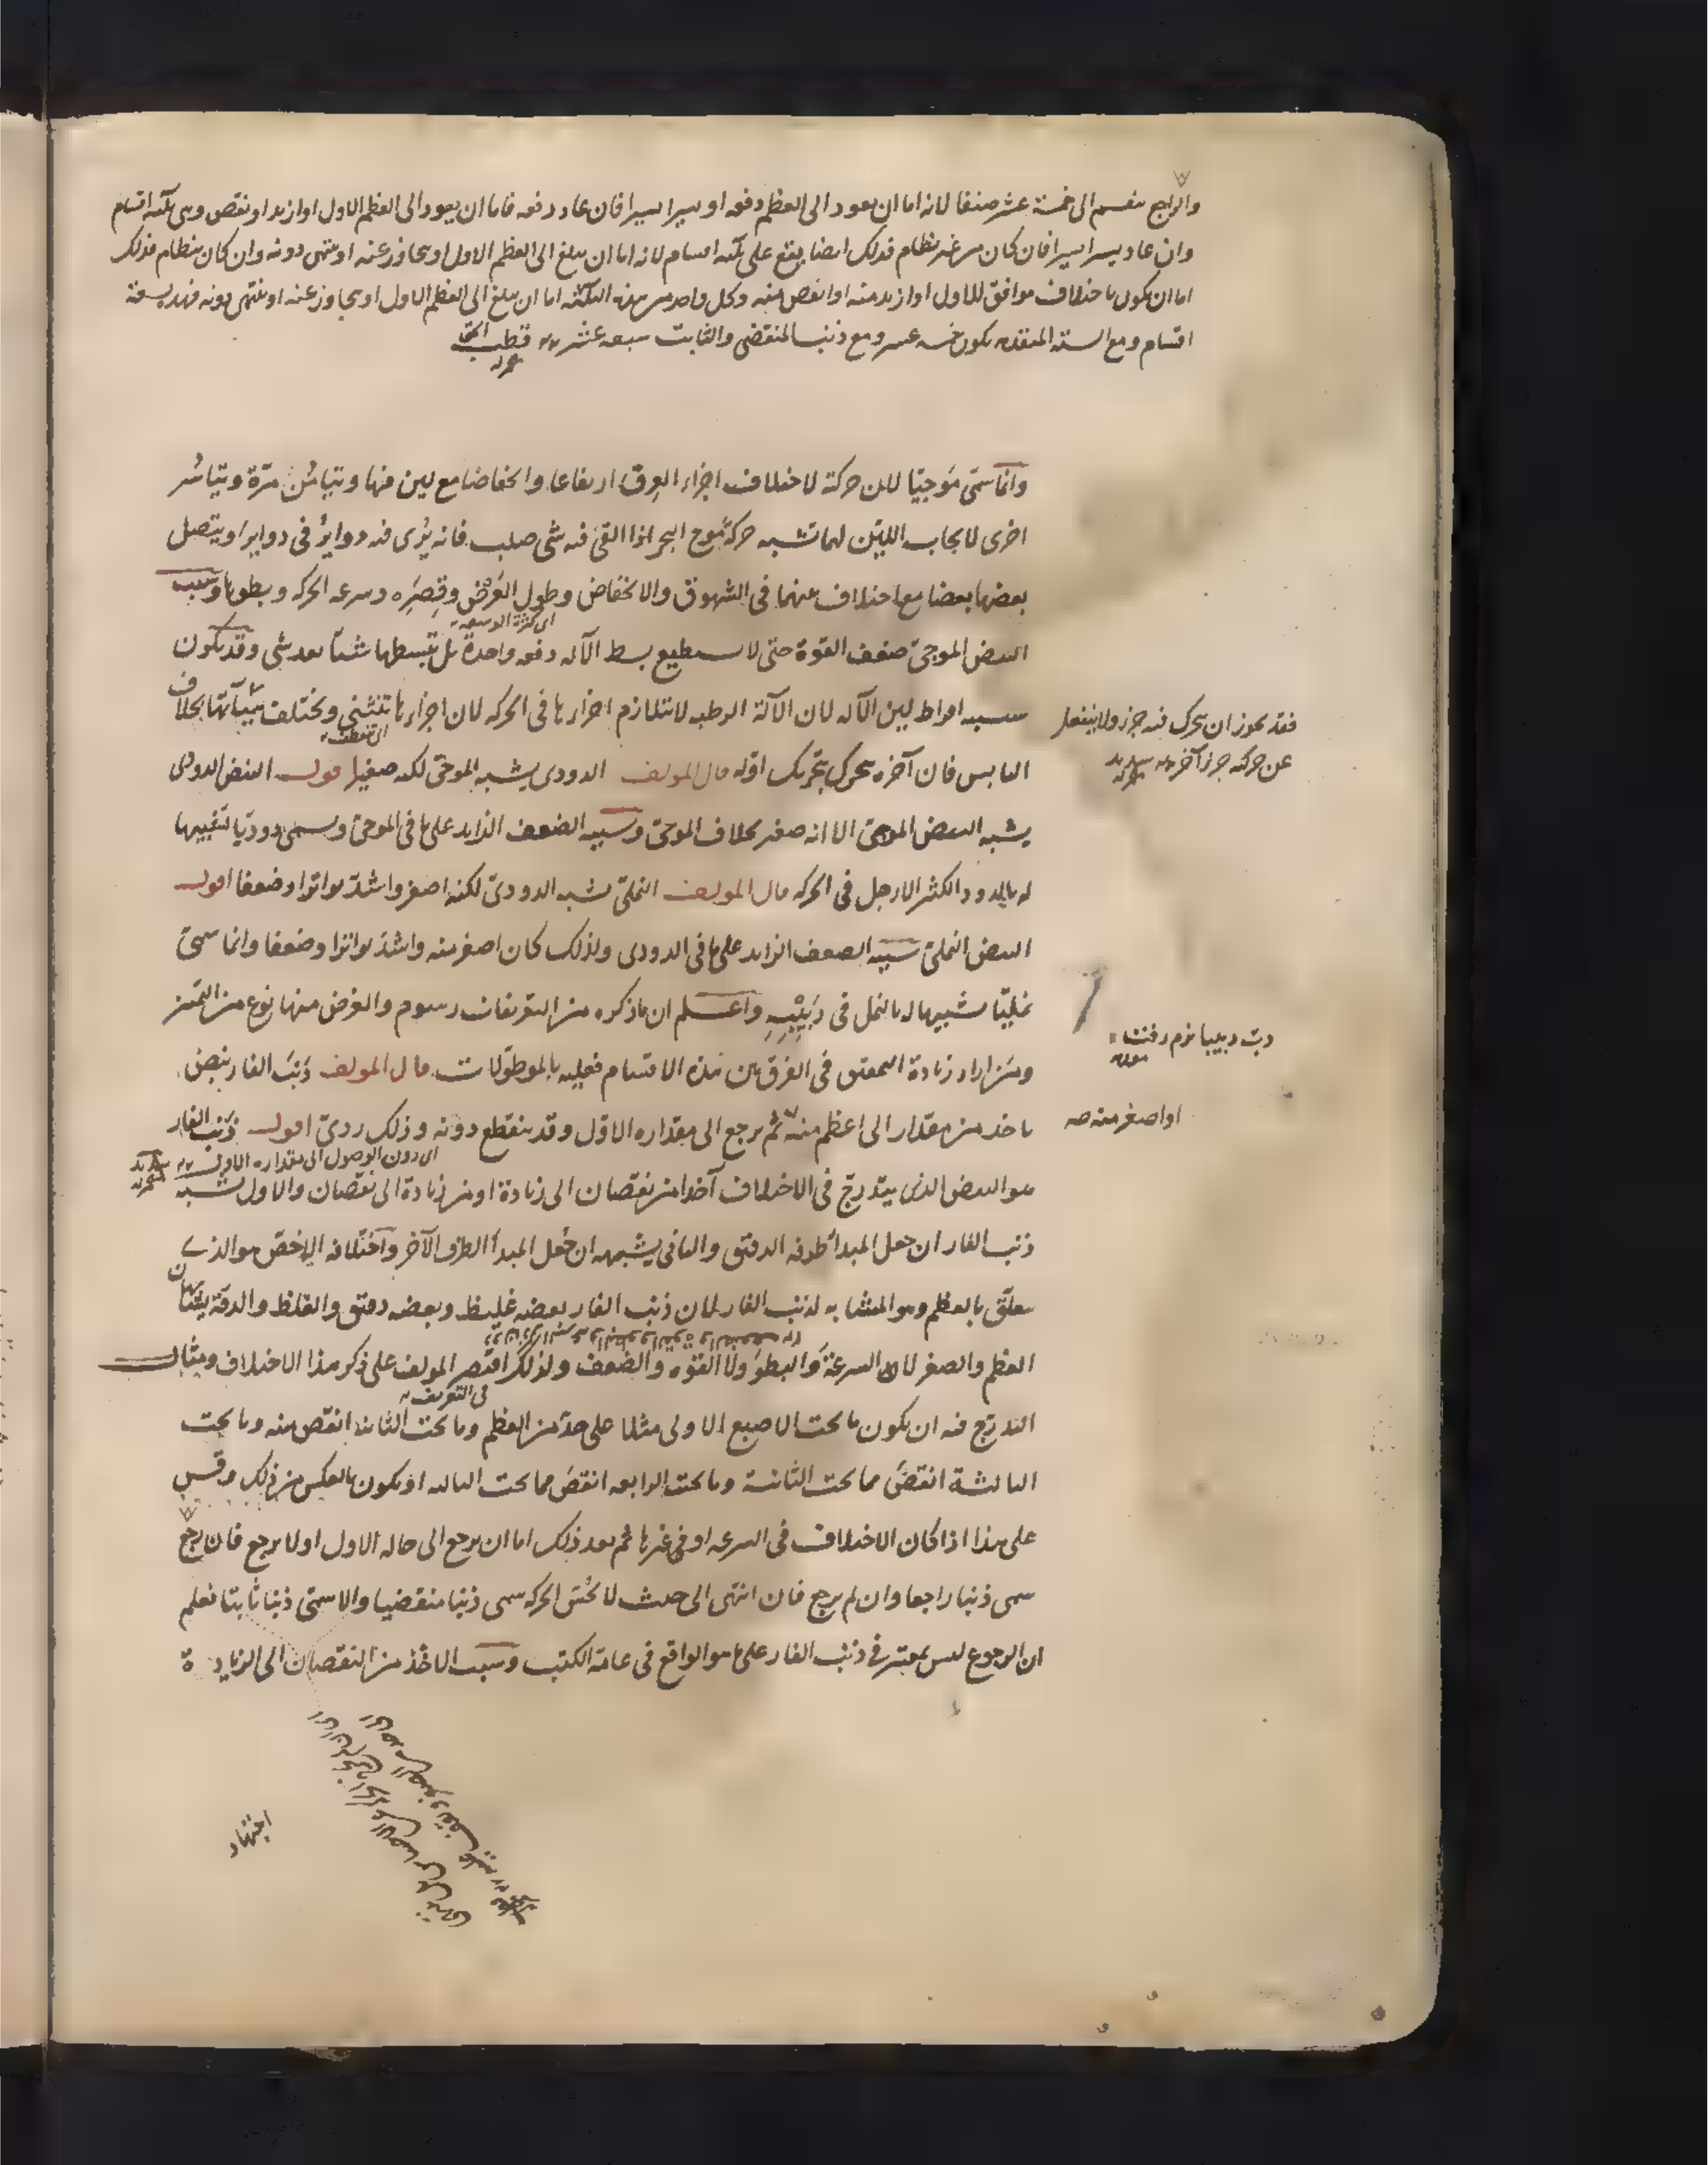 والراجع ينقسم الى خمسة عشر صنفا لانه اما ان يعود الى العظم دفعه او يسيرا يسيرا فان عاد دفعه فاما ان يعود الى العظم الاول او ازيد او نقص وهى ثلثه اقسام
وان عاد يسيرا يسيرا فان كان من غير نظام فذلك ايضا يقع على ثلثه اقسام لانه اما ان يبلغ الى العظم الاول او يتجاوز عنه او ينتهى دونه وان كان بنظام فذلك
اما ان يكون باختلاف موافق للاول او ازيد منه او انقص منه وكل واحد من هذه الثلثه اما ان يبلغ الى العظم الاول او يتجاوز عنه او ينتهى دونه فهذه تسعة
اقسام ومع الستة المتقدمه يكون خمسه عشر ومع ذنب المنقضى والثابت سبعه عشر قطب
وانما سمى موجيا لان حركة لاختلاف اجزاء العرق ارتفاعا وانخفاضا مع لين فيها ويتيامن مرة ويتياسر
اخرى لايجاب اللين لها تشبه حركة موج البحر اذا القى فيه شى صلب فانه يرى فيه دواير فى دواير او يتصل
بعضها بعضا مع اختلاف بينهما فى الشهوق والانخفاض وطول العرض وقصره وسرعه الحركه وبطوها وسبب
النبض الموجى ضعف القوة حتى لا يستطيع بسط الآله دفعه واحدة بل تبسطها شيئا بعد شى وقد يكون
سببه افراط لين الآله لان الآلة الرطبه لا تتلازم اجزاءها فى الحركه لان اجزاءها تنثنى ويختلف هيآتها بخلاف
فقد يجوز ان يتحرك فيه جزء ولا ينفعل
عن حركه جزء آخر
اى تنعطف
اليابس فان آخره يتحرك بتحريك اوله قال المولف الدودى يشبه الموجى لكنه صغير اقول النبض الدودى
يشبه النبض الموجى الا انه صغير بخلاف الموجى وسببه الضعف الزايد على ما فى الموجى وسمى دوديا تشبيها
له بالدود الكثير الارجل فى الحركه قال المولف النملى يشبه الدودى لكنه اصغر واشد تواترا وضعفا اقول
النبض النملى سببه الضعف الزايد على ما فى الدودى ولذلك كان اصغر منه واشد تواترا وضعفا وانما سمى
نمليا تشبيها له بالنمل فى دبيبه واعلم ان ما ذكره من التعريفات رسوم والغرض منها نوع من التميز
دب دبيبا نرم رفتن
ومن اراد زيادة التعمق فى الفرق بين هذه الاقسام فعليه بالمطولات قال المولف ذنب الفار نبض
ياخذ من مقدار الى اعظم منه ثم يرجع الى مقداره الاول وقد ينقطع دونه وذلك ردى اقول ذنب الفار
او اصغر منه صه
اى دون الوصول الى مقداره الاول
هو النبض الذى يتدرج فى الاختلاف آخذا من نقصان الى زيادة او من زيادة الى نقصان والاول يشبه
ذنب الفار ان جعل المبدا طرفه الدقيق والثانى يشبهه ان جعل المبدا الطرف الآخر واختلافه الاخص هو الذى
يتعلق بالعظم وهو المشابه لذنب الفار لان ذنب الفار بعضه غليظ وبعضه دقيق والغلظ والدقة يشبهان
العظم والصغر لا السرعة والبطو ولا القوه والضعف ولذلك اقتصر المولف على ذكر هذا الاختلاف ومثال
فى التعريف
التدرج فيه ان يكون ما تحت الاصبع الاولى مثلا على حد من العظم وما تحت الثانية انقص منه وما تحت
الثالثة انقص مما تحت الثانية وما تحت الرابعه انقص مما تحت الثالثه او يكون بالعكس من ذلك وقس
على هذا اذا كان الاختلاف فى السرعه او فى غيرها ثم بعد ذلك اما ان يرجع الى حاله الاول او لا يرجع فان رجع
سمى ذنبا راجعا وان لم يرجع فان انتهى الى حيث لا تحس الحركه سمى ذنبا منقضيا والا سمى ذنبا ثابتا فعلم
ان الرجوع ليس بمعتبر فى ذنب الفار على ما هو الواقع فى عامة الكتب وسبب الاخذ من النقصان الى الزيادة
اجتهاد